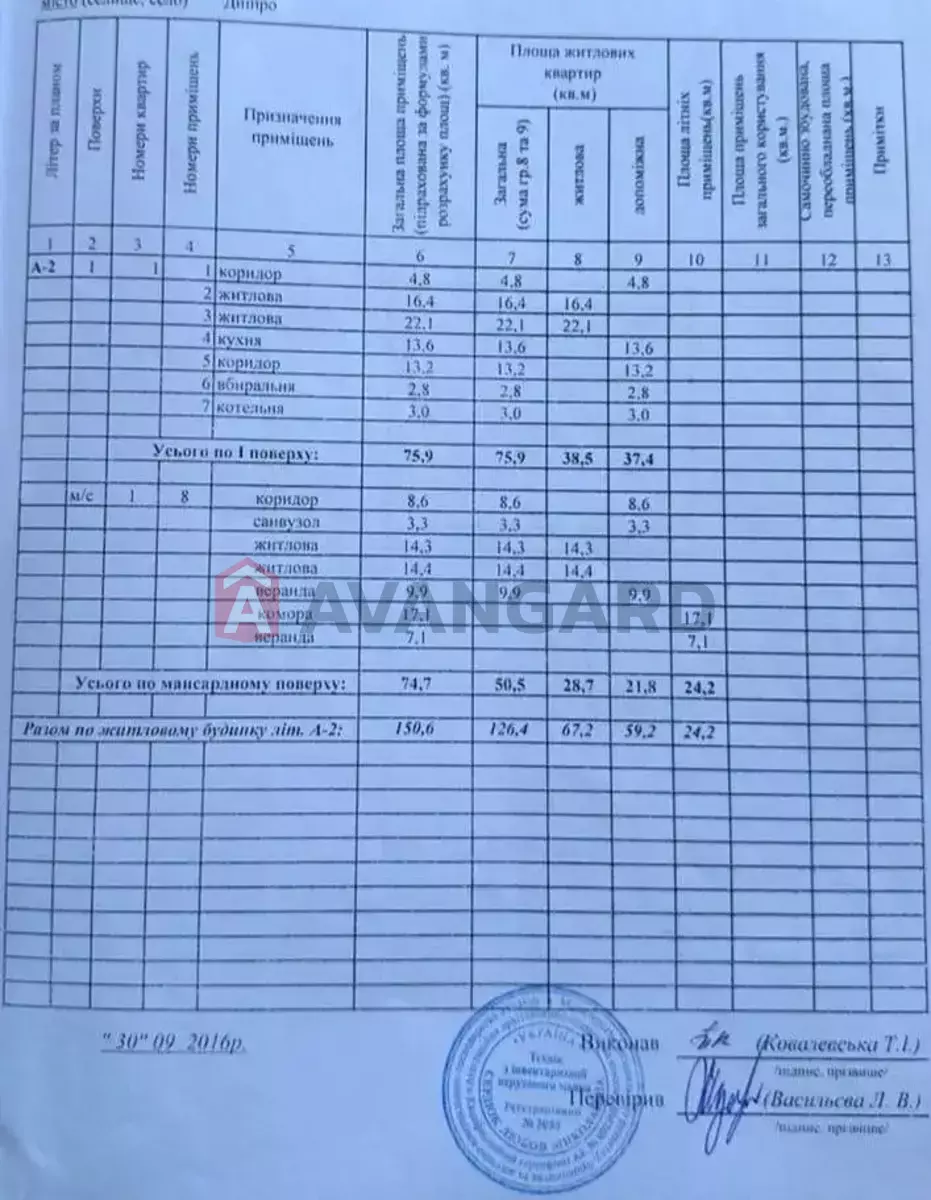 місто (селище, село) Дніпро
Літер за планом
Поверхи
Номери квартир
Номери приміщень
Призначення приміщень
Загальна площа приміщень (підрахована за формулами розрахунку площ) (кв. м)
Площа житлових квартир (кв.м)
Загальна (сума гр.8 та 9)
житлова
допоміжна
Площа літніх приміщень(кв.м)
Площа приміщень загального користування (кв.м.)
Самочинно збудована, переобладнана площа приміщень (кв.м.)
Примітки
1 2 3 4 5 6 7 8 9 10 11 12 13
А-2 1 1 1 коридор 4,8 4,8 4,8
2 житлова 16,4 16,4 16,4
3 житлова 22,1 22,1 22,1
4 кухня 13,6 13,6 13,6
5 коридор 13,2 13,2 13,2
6 вбиральня 2,8 2,8 2,8
7 котельня 3,0 3,0 3,0
Усього по І поверху: 75,9 75,9 38,5 37,4
м/с 1 8 коридор 8,6 8,6 8,6
санвузол 3,3 3,3 3,3
житлова 14,3 14,3 14,3
житлова 14,4 14,4 14,4
веранда 9,9 9,9 9,9
комора 17,1 17,1
веранда 7,1 7,1
AVANGARD
Усього по мансардному поверху: 74,7 50,5 28,7 21,8 24,2
Разом по житловому будинку літ. А-2: 150,6 126,4 67,2 59,2 24,2
"30" 09 2016р.
Виконав (Ковалевська Т.І.)
/підпис, прізвище/
Перевірив (Васильєва Л. В.)
/підпис, прізвище/
УКРАЇНА
Технік
з інвентаризації
нерухомого майна
Реєстраційний